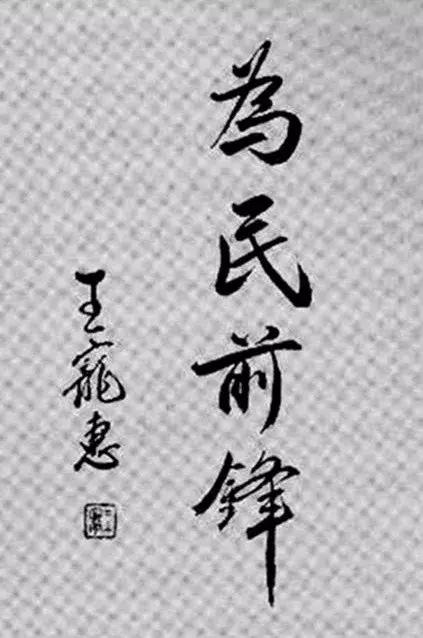 為民前鋒
王寵惠